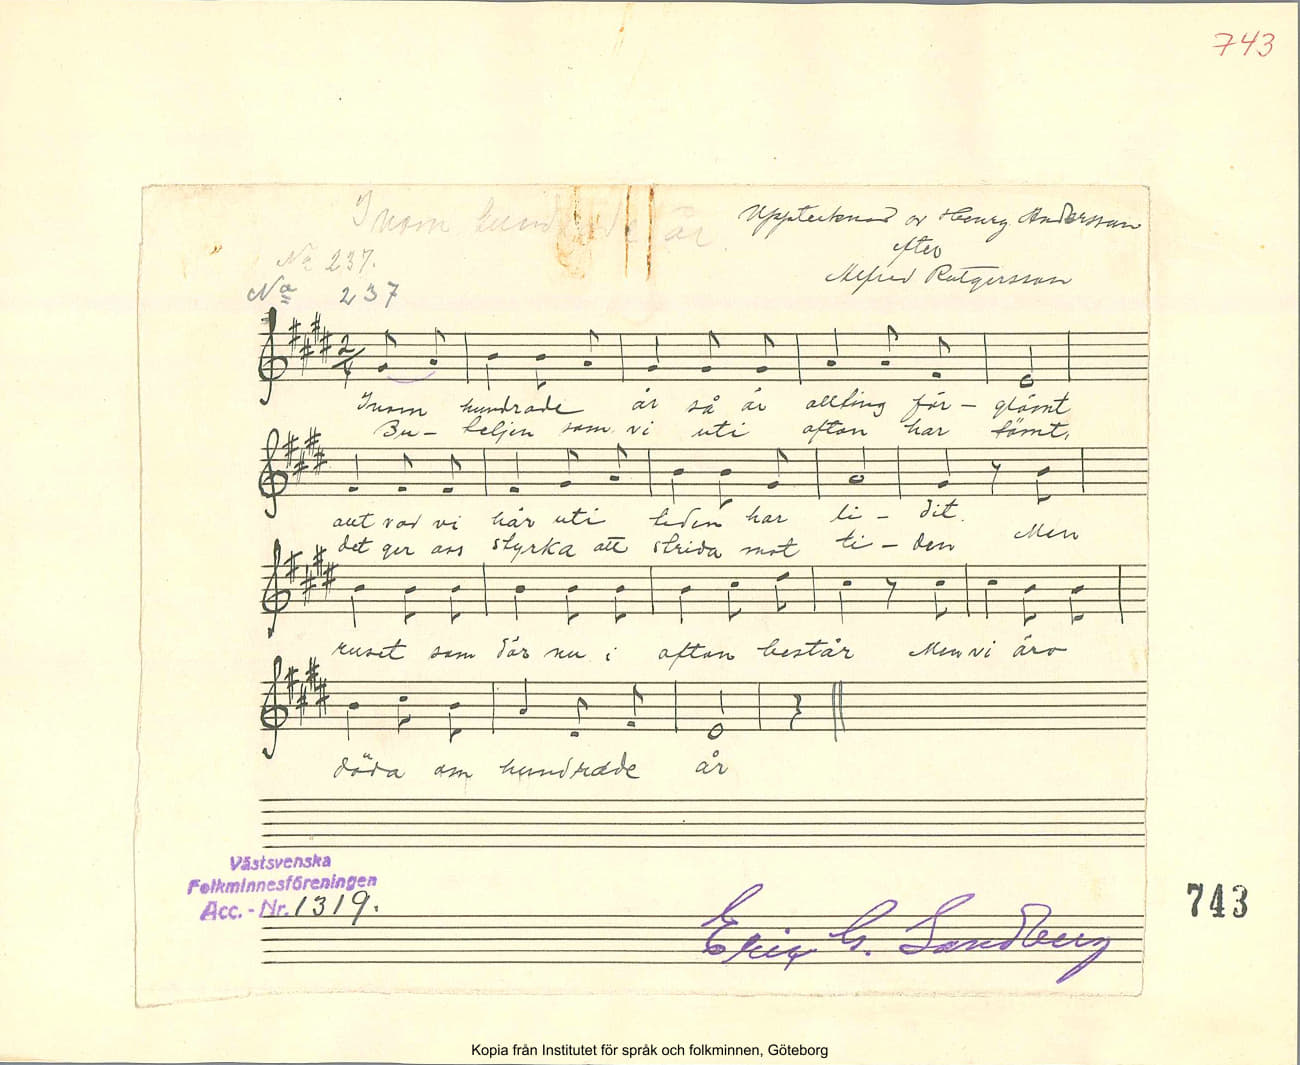 743
Inom hundrade år
Upptecknad av Henry Andersson
efter
Alfred Rutgersson
No 237.
No 237
2/4
Inom hundrade år så är allting för – glömt
Bu – teljen som vi uti afton har tömt.
allt vad vi här uti tiden har li – dit.
det ger oss styrka att strida mot ti – den Men
ruset som där nu i afton består Men vi äro
döda om hundrade år
Västsvenska
Folkminnesföreningen
Acc. - Nr. 1319.
743
Eric G. Sandberg
Kopia från Institutet för språk och folkminnen, Göteborg